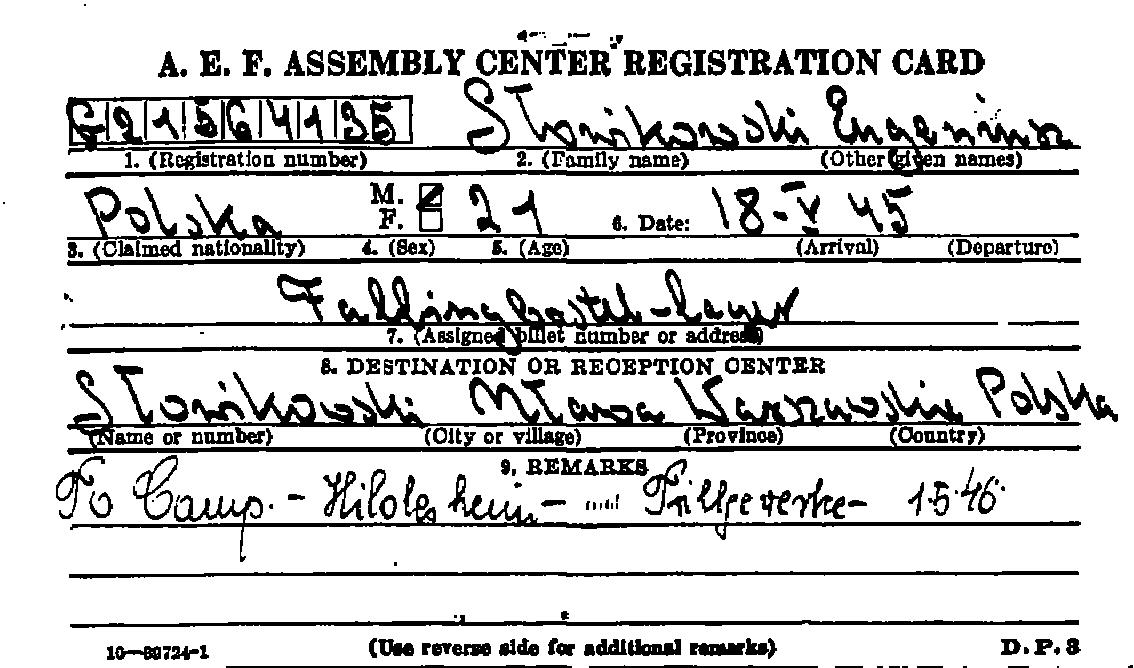 A. E. F. ASSEMBLY CENTER REGISTRATION CARD
G21564135 Słonikowski Eugeniusz
1. (Registration number) 2. (Family name) (Other given names)
Polska M. F. 21 6. Date: 18-V 45
3. (Claimed nationality) 4. (Sex) 5. (Age) (Arrival) (Departure)
Fallingbostel-Lager
7. (Assigned billet number or address)
8. DESTINATION OR RECEPTION CENTER
Słonikowski Mława Warszawskie Polska
(Name or number) (City or village) (Province) (Country)
9. REMARKS
To Camp. - Hildesheim - Trillgeverke - 1546
(Use reverse side for additional remarks)
10—89724-1 D.P.3